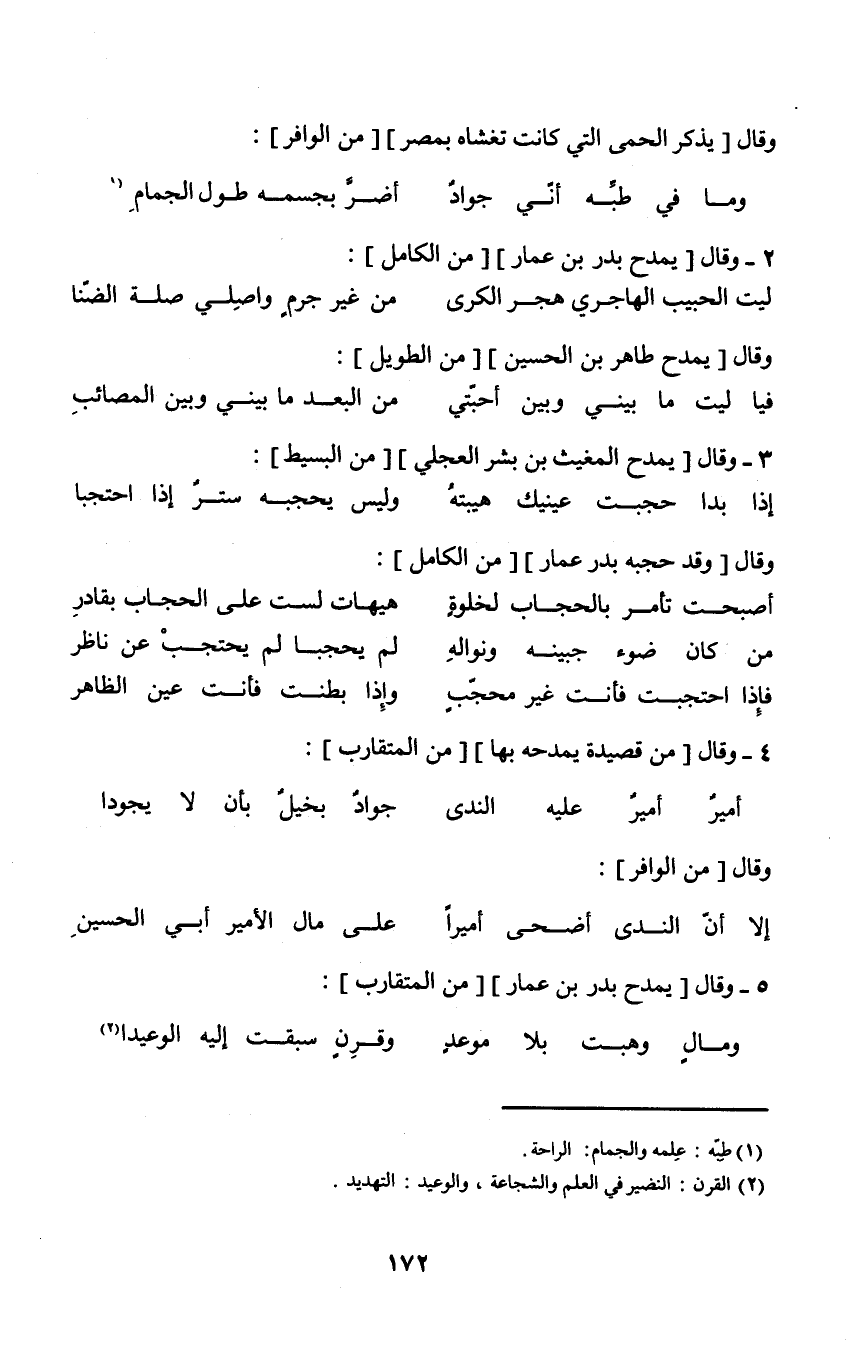 وقال [ يذكر الحمى التي كانت تغشاه بمصر ] [ من الوافر ] :
ومــا في طبِّــه أنّــي جوادٌ أضــرَّ بجسمــه طــول الجمامِ (١
٢ ـ وقال [ يمدح بدر بن عمار ] [ من الكامل ] :
ليت الحبيب الهاجــري هجــر الكرى من غير جرمٍ واصلِــي صلــة الضّنا
وقال [ يمدح طاهر بن الحسين ] [ من الطويل ] :
فيا ليت ما بينــي وبين أحبّتي من البعــد ما بينــي وبين المصائبِ
٣ ـ وقال [ يمدح المغيث بن بشر العجلي ] [ من البسيط ] :
إذا بدا حجبــت عينيك هيبتهُ وليس يحجبــه ستــرٌ إذا احتجبا
وقال [ وقد حجبه بدر عمار ] [ من الكامل ] :
أصبحــت تأمــر بالحجــاب لخلوةٍ هيهــات لســت علــى الحجــاب بقادرِ
من كان ضوء جبينــه ونوالهِ لم يحجبــا لم يحتجــبْ عن ناظر
فإِذا احتجبــت فأنــت غير محجّبٍ وإِذا بطنــت فأنــت عين الظاهر
٤ ـ وقال [ من قصيدة يمدحه بها ] [ من المتقارب ] :
أميرٌ أميرٌ عليه الندى جوادٌ بخيلٌ بأن لا يجودا
وقال [ من الوافر ] :
إلا أنّ النــدى أضــحى أميراً علــى مال الأمير أبــي الحسينِ
٥ ـ وقال [ يمدح بدر بن عمار ] [ من المتقارب ] :
ومــالٍ وهبــت بلا موعدٍ وقــرِنٍ سبقــت إليه الوعيدا(٢)
(١) طبِّه : عِلمه والجمام: الراحة .
(٢) القرن : النضير في العلم والشجاعة ، والوعيد : التهديد .
١٧٢